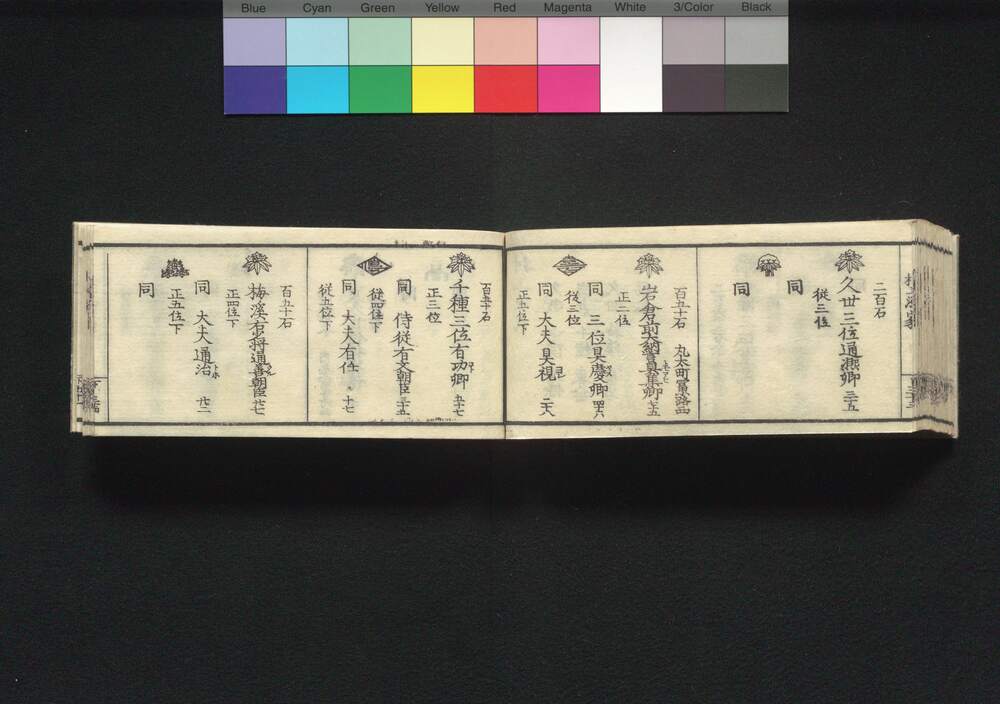 Blue Cyan Green Yellow Red Magenta White 3/Color Black
二百石
久世三位通熙卿 三十五
従三位
同
同
百五十石 丸太町富小路西
岩倉前大納言具集卿 七十五
正二位
同 三位具慶卿 四十六
従三位
同 大夫具視 二十八
正五位下
百五十石
千種三位有功卿 五十七
正三位
同 侍従有文朝臣 三十五
従四位下
同 大夫有任 十七
従五位下
百五十石
梅溪右少将通善朝臣 廿七
正四位下
同 大夫通治 廿二
正五位下
同